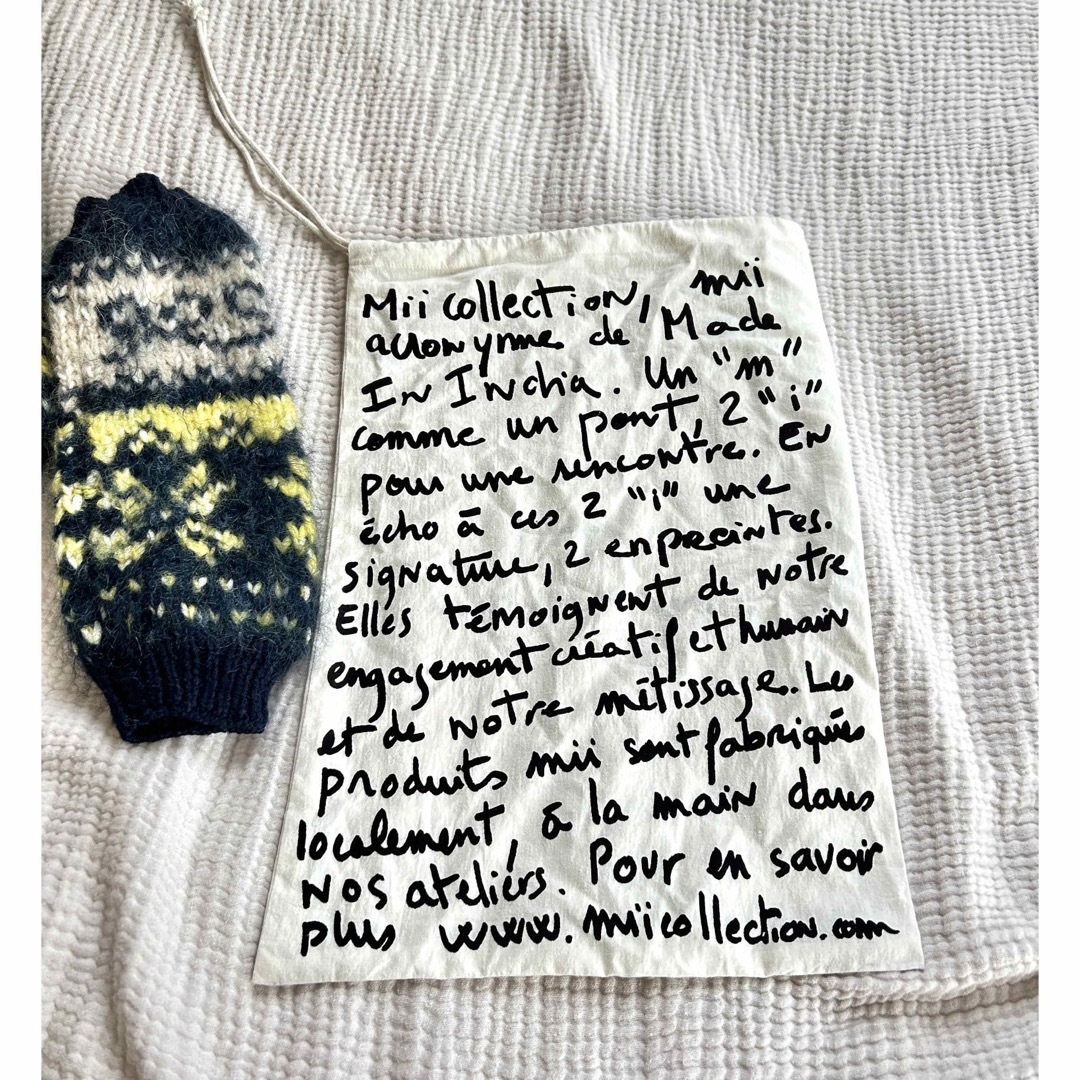 Mii collection, mii
acronyme de Made
In India. Un "m"
comme un pont, 2 "i"
pour une rencontre. En
écho à ces 2 "i" une
signature, 2 enpreintes.
Elles témoignent de notre
engagement créatif et humain
et de notre métissage. Les
produits mii sont fabriqués
localement, à la main dans
nos ateliers. Pour en savoir
plus www.miicollection.com